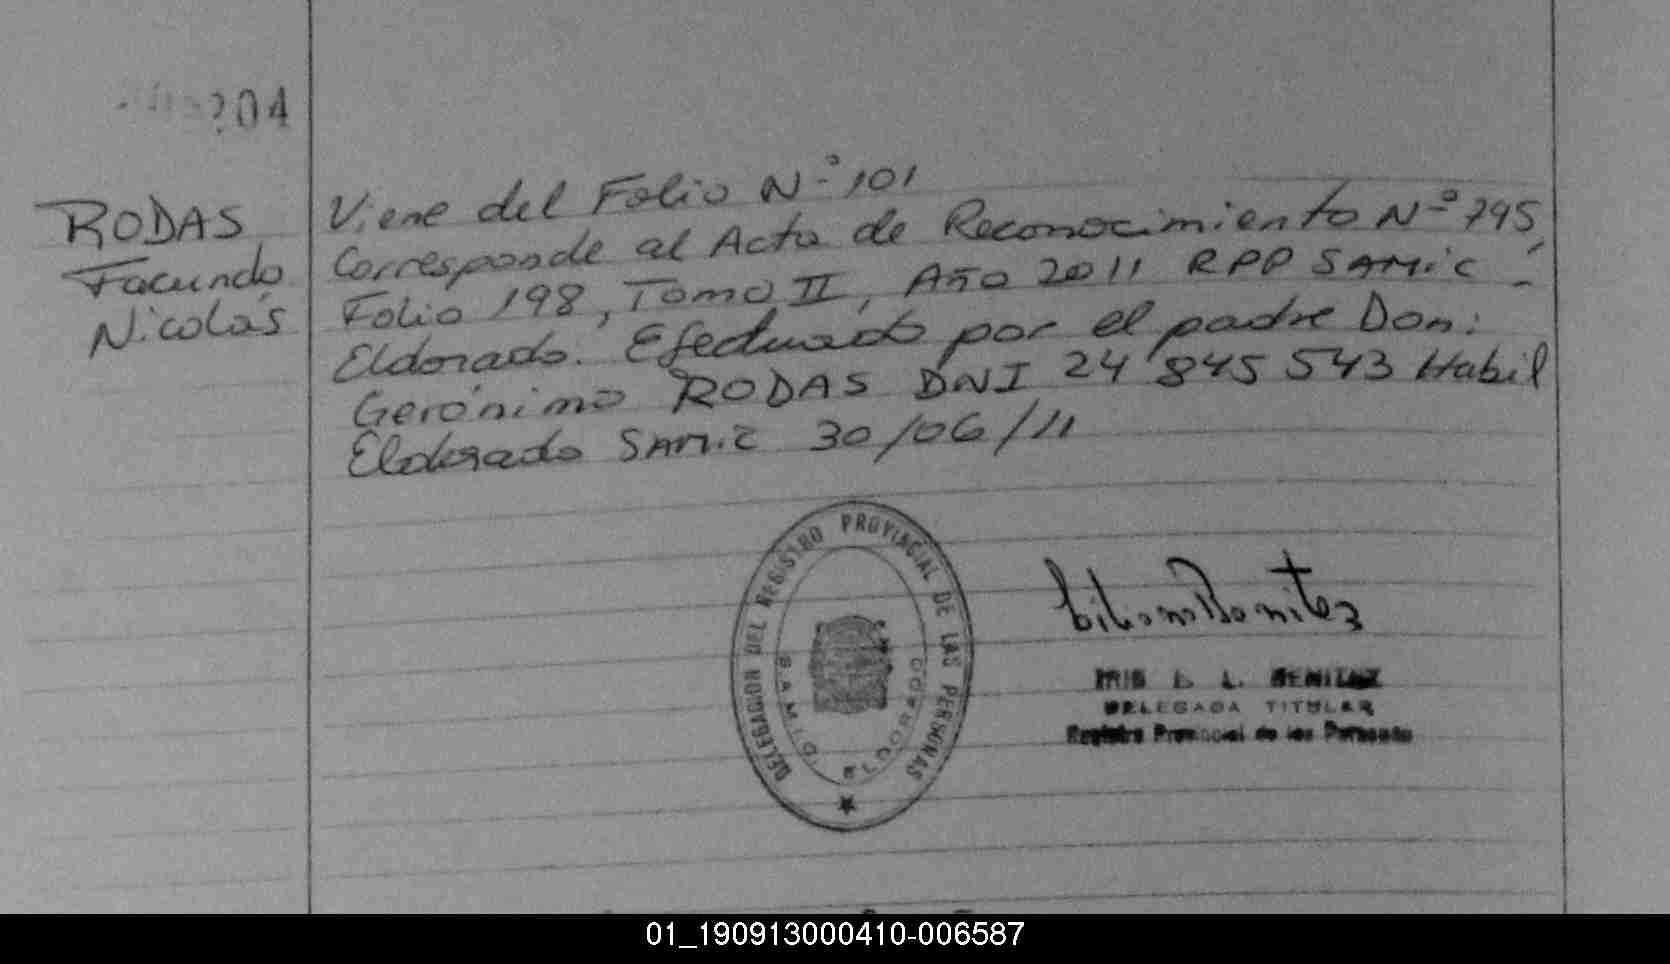 204
RODAS
Facundo
Nicolás
Viene del Folio Nº 101
Corresponde al Acta de Reconocimiento Nº 795,
Folio 198, Tomo II, Año 2011 RPP SAMiC -
Eldorado. Efectuado por el padre Don:
Gerónimo RODAS DNI 24 845 543 Habil
Eldorado SAMiC 30/06/11
DELEGACION DEL REGISTRO PROVINCIAL DE LAS PERSONAS
S.A.M.I.C. ELDORADO
Benitez
IRIS L. L. BENITEZ
DELEGADA TITULAR
Registro Provincial de las Personas
01_190913000410-006587